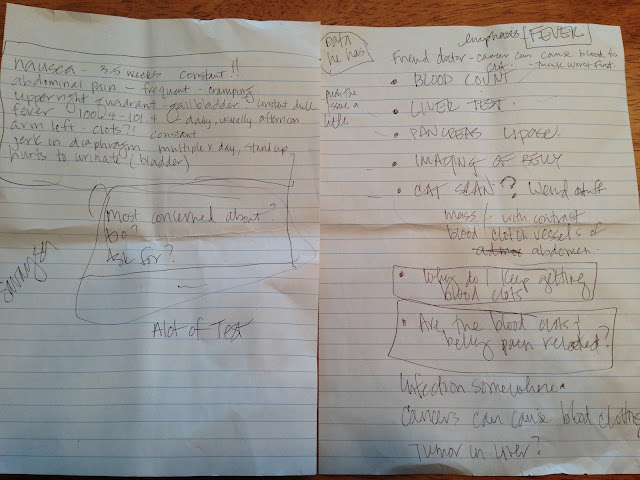 nausea - 3.5 weeks constant!!
abdominal pain - frequent - cramping
upper right quadrant - gallbladder constant dull
fever (100.4 - 101.4 daily, usually afternoon
arm left - clots?! constant
jerk in diaphragm multiple x day, stand up
hurts to urinate (bladder)
Most concerned about?
Do?
Ask for?
Alot of Test
DATA
he has
emphasis [FEVER]
Friend doctor - cancer can cause blood to
clot - think worst first.
push the
issue a
little
• BLOOD COUNT
• LIVER TEST
• PANCREAS Lipase
• IMAGING OF BELLY
• CAT SCAN? Weird stuff
mass / with contrast
blood clot in vessels of
abdomen
• Why do I keep getting
blood clots
• Are the blood clots &
belly pain related?
Infection somewhere.
Cancers can cause blood clotting
Tumor in liver?